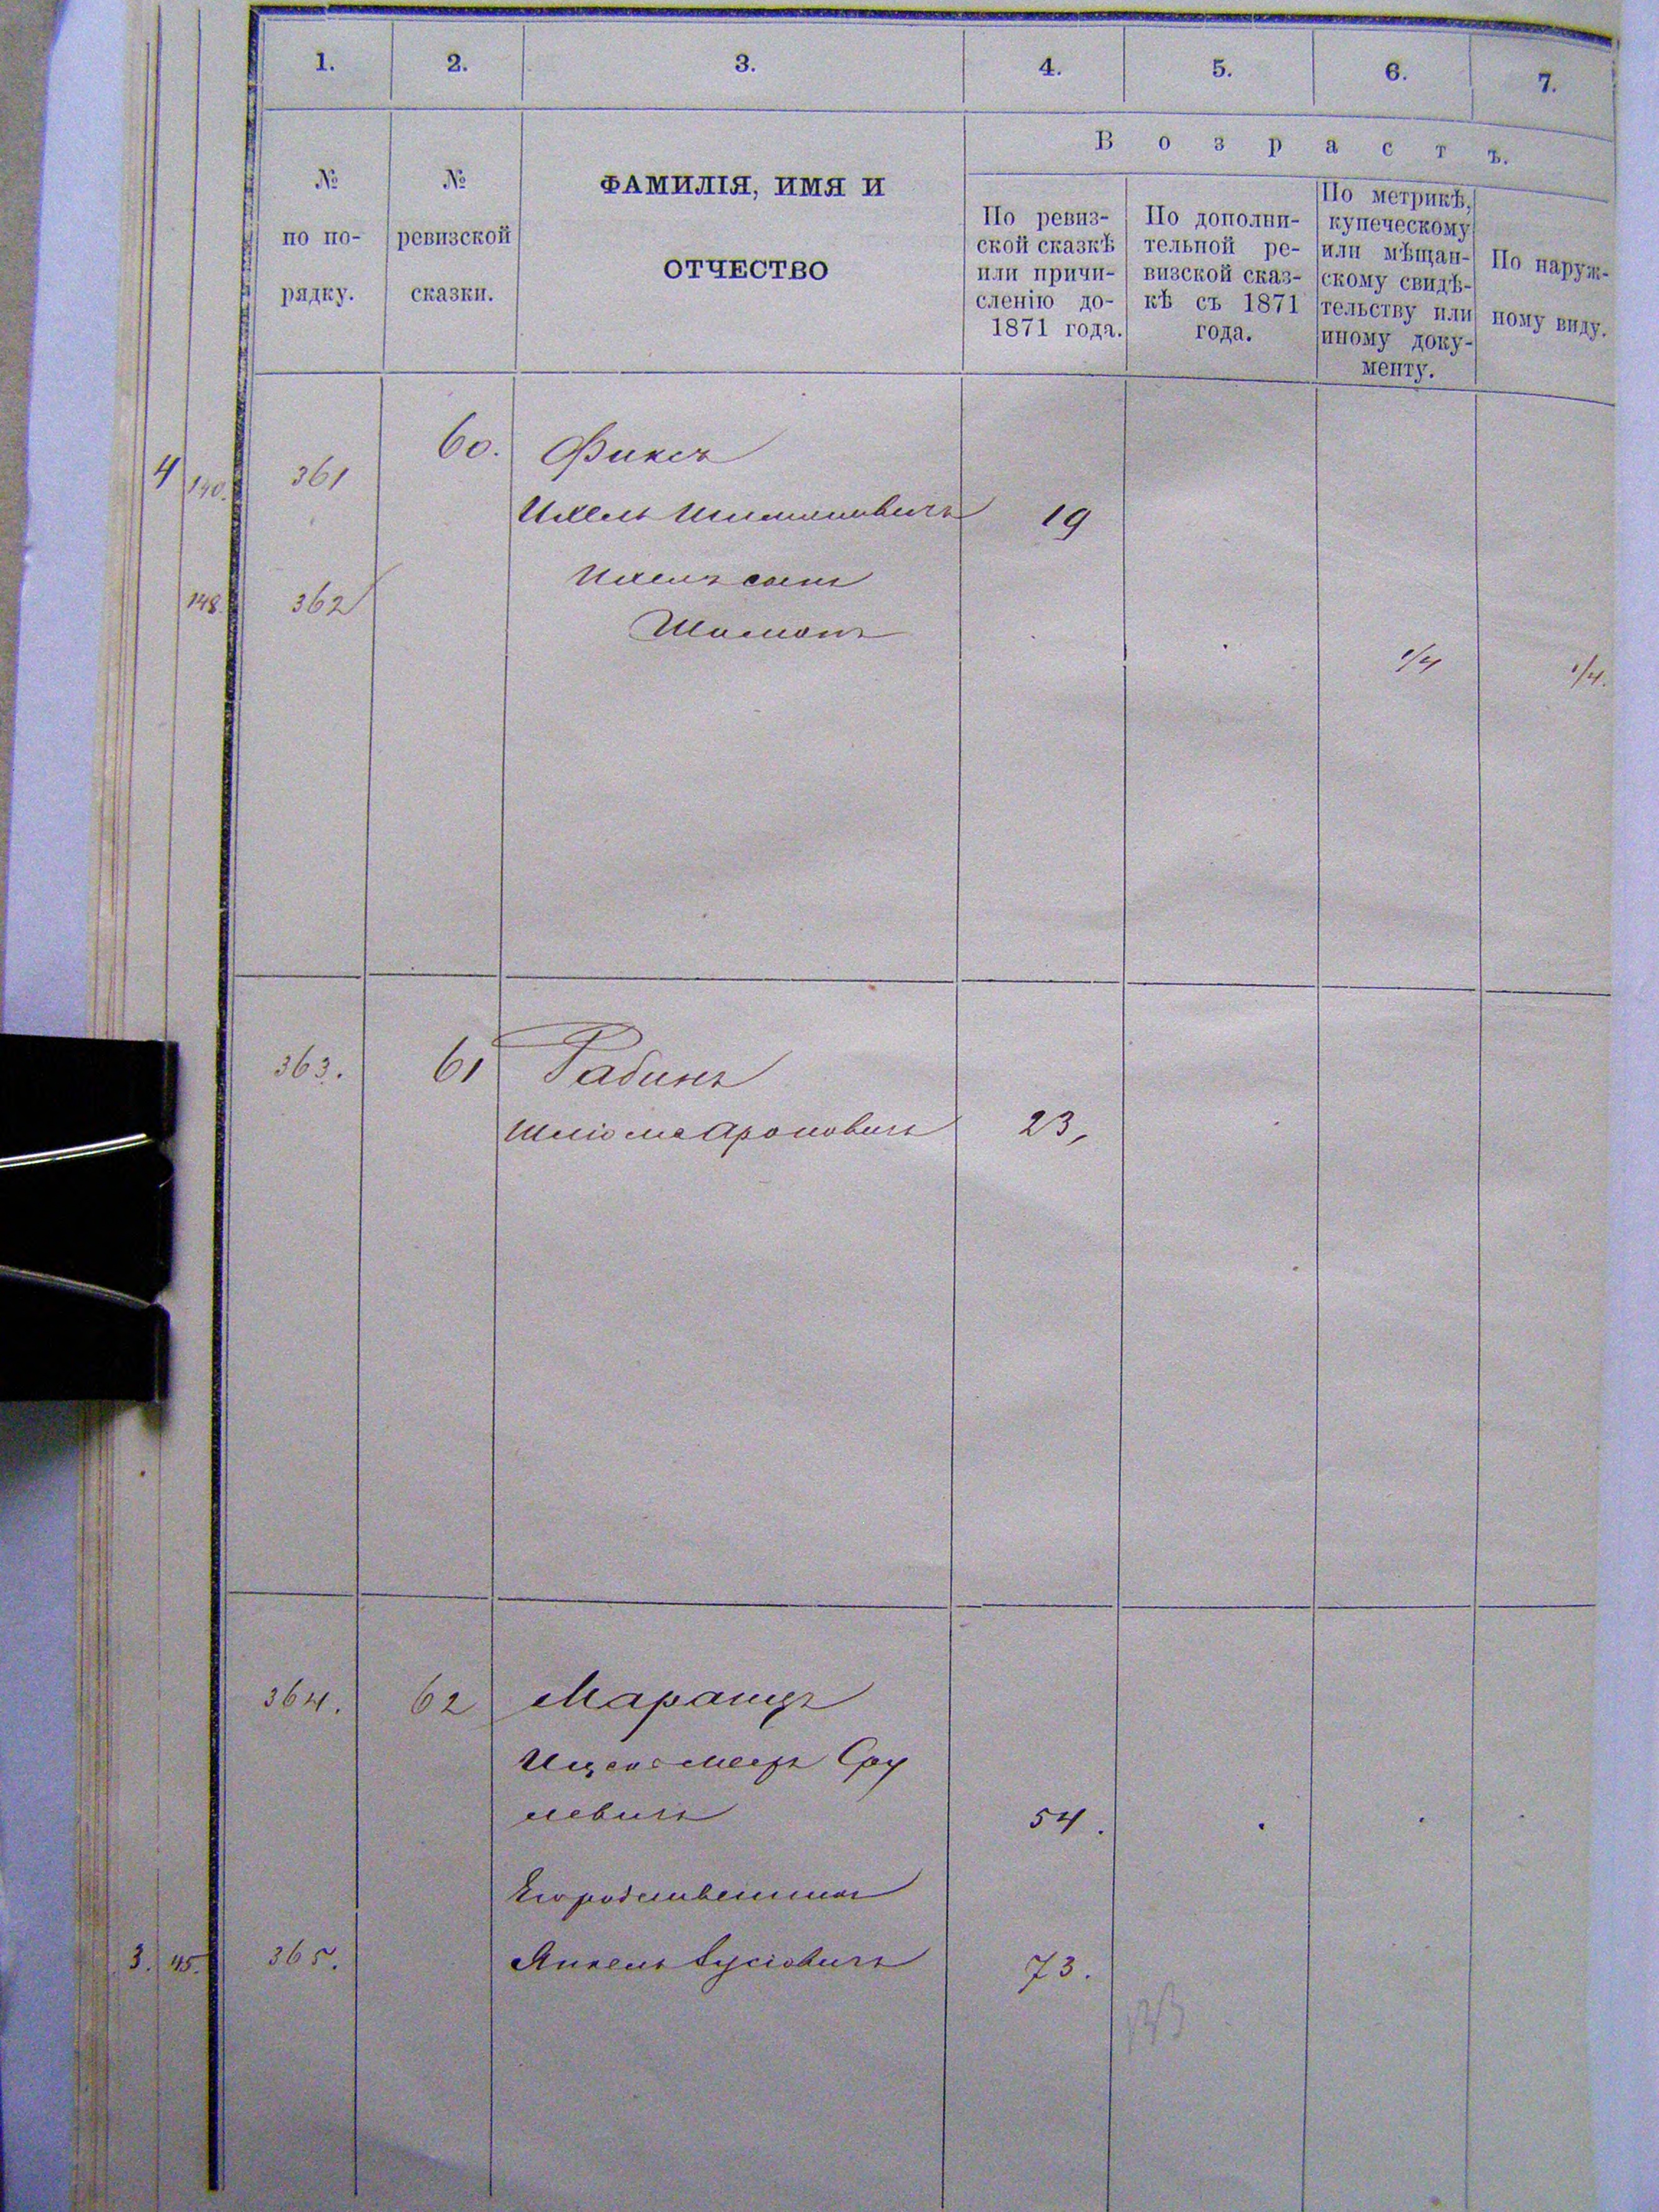 1. 2. 3. 4. 5. 6. 7.
В о з р а с т ъ.
№
по по-
рядку.
№
ревизской
сказки.
ФАМИЛІЯ, ИМЯ И
ОТЧЕСТВО
По ревиз-
ской сказкѣ
или причи-
сленію до-
1871 года.
По дополни-
тельной ре-
визской сказ-
кѣ съ 1871
года.
По метрикѣ,
купеческому
или мѣщан-
скому свидѣ-
тельству или
иному доку-
менту.
По наруж-
ному виду.
60. Фиксъ
4 140. 361
Ихель Шимоновичъ 19
148. 362
Шимонъ
1/4 1/4.
363. 61 Рабинъ
Шліома Ароновичъ 23,
364. 62 Маранцъ
Ицко Мееръ Сру
левичъ 54.
Его родственникъ
3. 145. 365. Янкель 73.